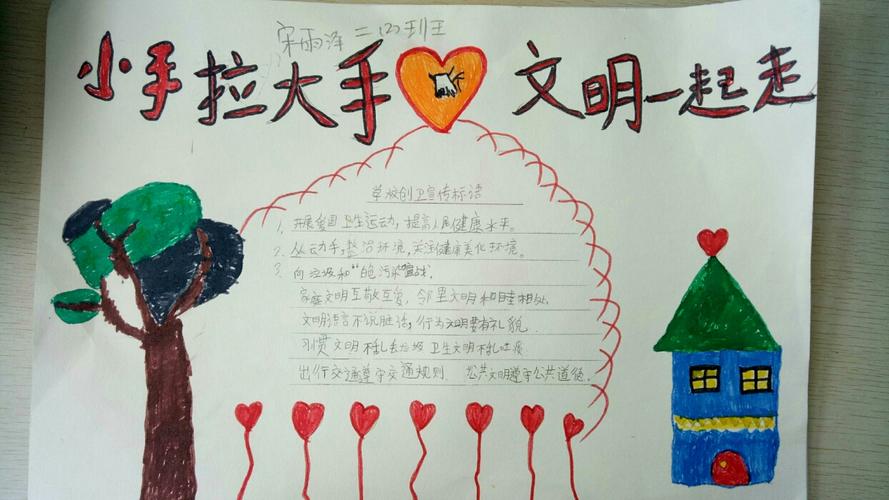 宋雨泽 二(2)班
小手拉大手 文明一起走
学校创卫宣传标语
1. 开展爱国卫生运动,提高人民健康水平。
2. 从动手,整治环境,关注健康美化环境。
3. 向垃圾和“白色污染”宣战。
家庭文明互敬互爱, 邻里文明和睦相处
文明语言不说脏话, 行为文明要有礼貌.
习惯文明不乱丢垃圾 卫生文明不乱吐痰
出行交通遵守交通规则. 公共文明遵守公共道德.